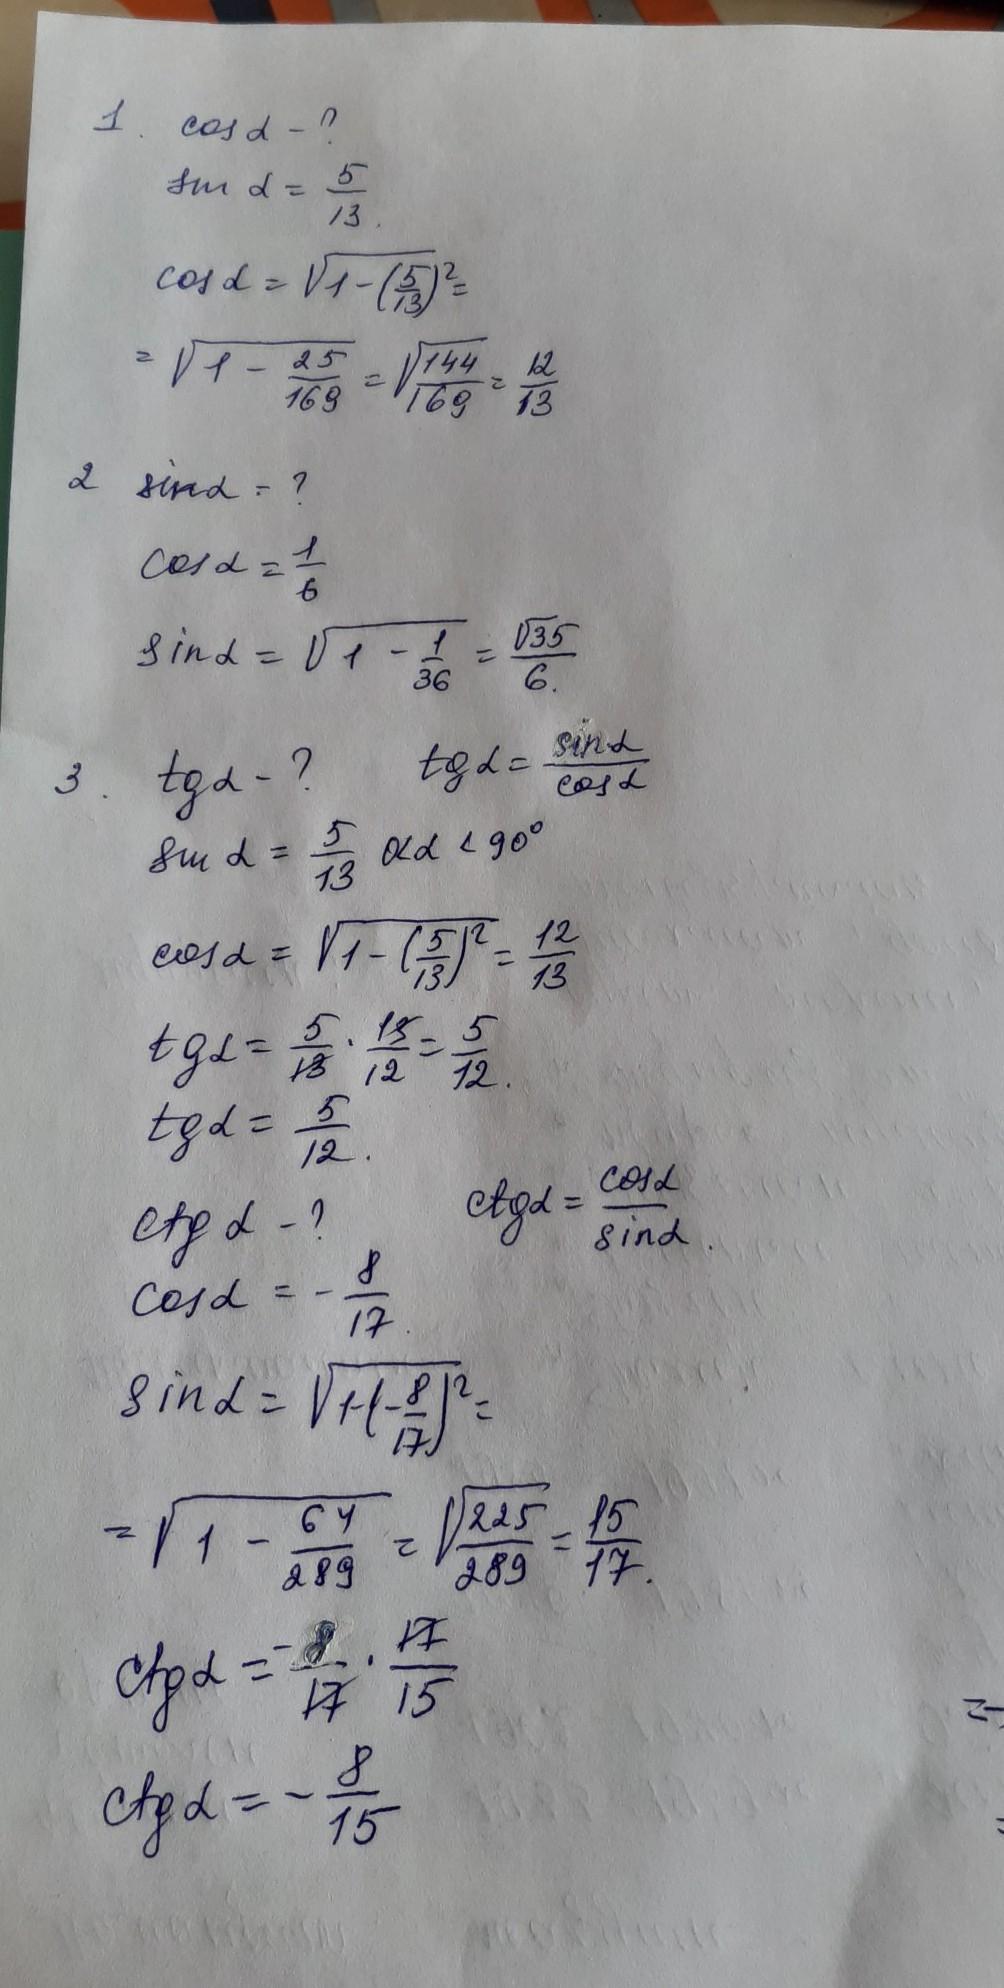 1. cos α - ?
sin α = 5/13.
cos α = √1-(5/13)² =
= √1 - 25/169 = √144/169 = 12/13
2 sin α - ?
cos α = 1/6
sin α = √1 - 1/36 = √35/6.
3. tg α - ? tg α = sin α/cos α
sin α = 5/13 0<α < 90°
cos α = √1-(5/13)² = 12/13
tg α = 5/13 · 13/12 = 5/12.
tg α = 5/12.
ctg α - ? ctg α = cos α/sin α.
cos α = - 8/17.
sin α = √1-(-8/17)² =
= √1 - 64/289 = √225/289 = 15/17.
ctg α = -8/17 · 17/15
ctg α = - 8/15